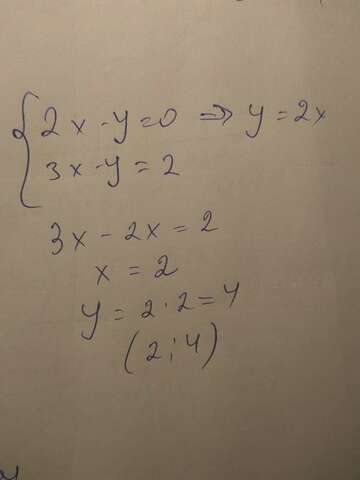 { 2x - y = 0 ⇒ y = 2x
3x - y = 2
3x - 2x = 2
x = 2
y = 2 · 2 = 4
(2; 4)